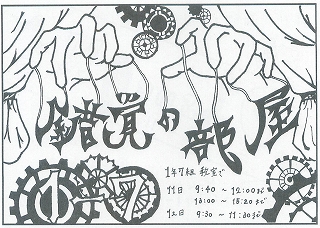 錯覚の部屋
1-7
1年7組 教室で
11日 9:40 ~ 12:00まで
13:00 ~ 15:20まで
12日 9:30 ~ 11:30まで